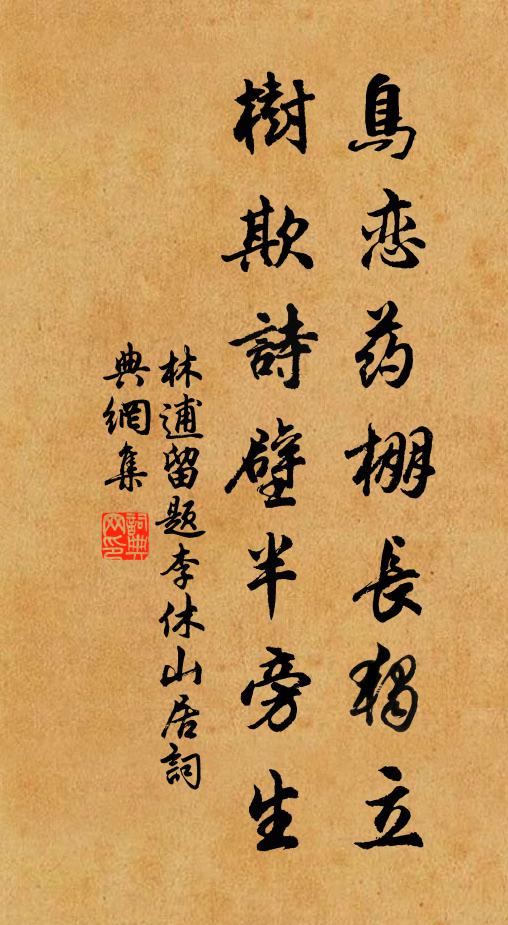 鳥恋药棚長獨立
樹欺詩壁半旁生
林逋留题李休山居詞
典網集
詞典网印